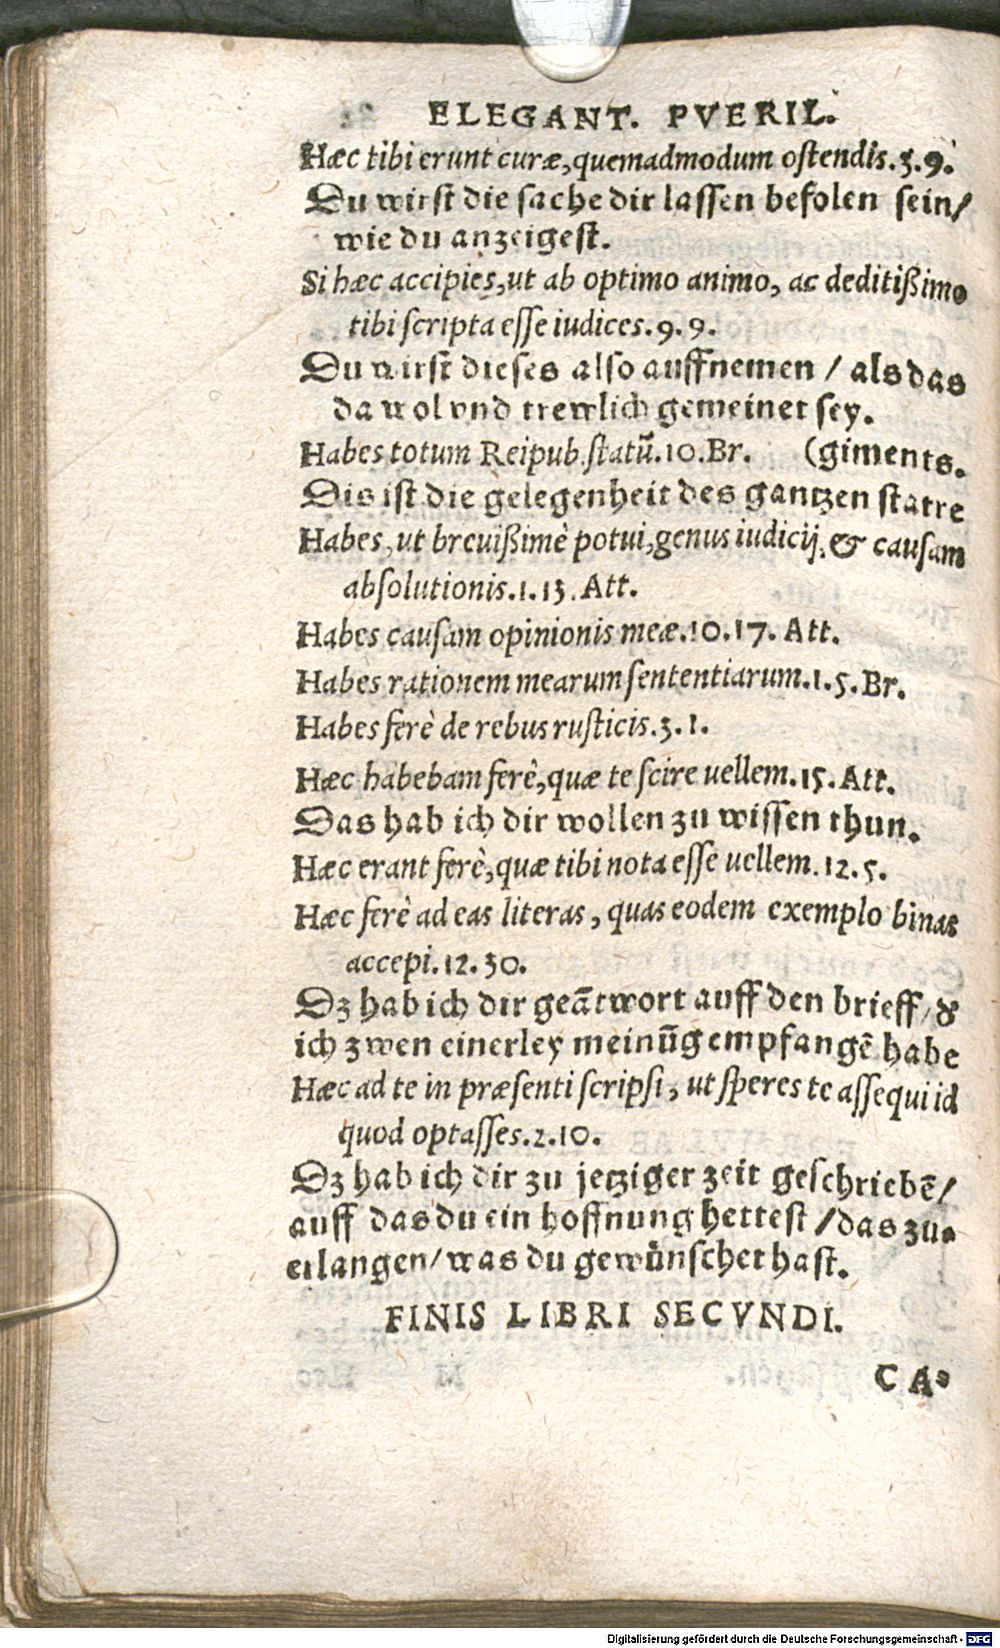 ELEGANT. PVERIL.
Hæc tibi erunt curæ, quemadmodum ostendis. 3. 9.
Du wirst die sache dir lassen befolen sein/
wie du anzeigest.
Si hæc accipies, ut ab optimo animo, ac deditißimo
tibi scripta esse iudices. 9. 9.
Du wirst dieses also auffnemen / als das
da wol vnd trewlich gemeinet sey.
Habes totum Reipub. statū. 10. Br. (giments.
Dis ist die gelegenheit des gantzen statre
Habes, ut breuißimè potui, genus iudicij, & causam
absolutionis. 1. 13. Att.
Habes causam opinionis meæ. 10. 17. Att.
Habes rationem mearum sententiarum. 1. 5. Br.
Habes ferè de rebus rusticis. 3. 1.
Hæc habebam ferè, quæ te scire uellem. 15. Att.
Das hab ich dir wollen zu wissen thun.
Hæc erant ferè, quæ tibi nota esse uellem. 12. 5.
Hæc ferè ad eas literas, quas eodem exemplo binas
accepi. 12. 30.
Dz hab ich dir geātwort auff den brieff/ &
ich zwen einerley meinūg empfangē habe
Hæc ad te in præsenti scripsi, ut speres te assequi id
quod optasses. 2. 10.
Dz hab ich dir zu jetziger zeit geschriebē/
auff das du ein hoffnung hettest / das zu-
erlangen/ was du gewünschet hast.
FINIS LIBRI SECVNDI.
CA-
Digitalisierung gefördert durch die Deutsche Forschungsgemeinschaft - DFG